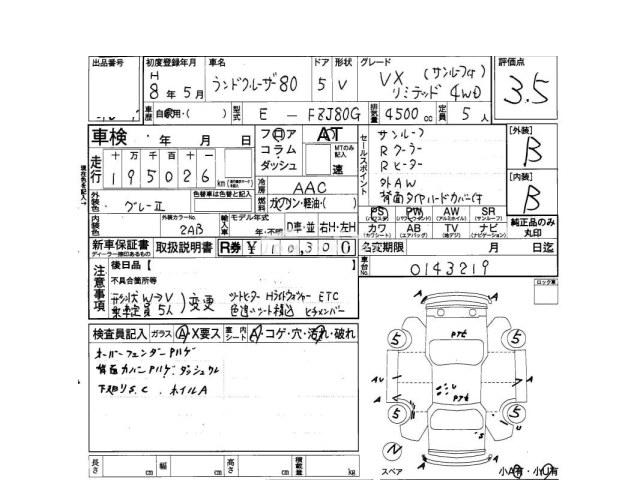 出品番号 初度登録年月 車名 ドア 形状 グレード 評価点
H 8年5月 ランドクルーザー80 5 V VX (サンルーフ付) リミテッド 4WD 3.5
車歴 自家用・( ) 型式 E - FZJ80G 排気量 4500cc 定員 5人
車検 ・ 年 月 日 フロア AT
コラム MTのみ記入
ダッシュ 速
走行 十万千百十一
195026 km
セールスポイント サンルーフ
Rクーラー
Rヒーター
外AW
背面タイヤハードカバー付
[外装] B
[内装] B
純正品のみ丸印
外装色 グレーII 色替車は色替と記入
冷房 AAC
燃料 ガソリン・軽油・( )
内装色 外装カラーNo. 2AB 輸入車 モデル年式 年・不明 D車・並 右H・左H
PS AW SR
(パワステ) (パワーウインド) (アルミホイル) (サンルーフ)
カワ AB TV ナビ
(カワシート) (エアバッグ) (地デジ) (ナビゲーション)
新車保証書 取扱説明書 R券 ¥10,300
ディーラー捺印あるもの
名変期限 月 日迄
車台No. 0143219
注意事項 後日品【 】
不具合箇所等
W→V 変更 シートヒーター Hライトウォッシャー ETC
乗車定員 5人 色違いシート積込
ロック車
検査員記入 ガラス A X要ス 室内シート コゲ・穴・汚れ・破れ
オーバーフェンダーアルゲ
背面カバーアルゲ. ダッシュ
下廻りS.C. ホイルA
A A
5 5
PTセ
AU A
U
PTセ
A A
5 5
S
A A
スペア 小A有・小U有
長さ cm 幅 cm 高さ cm 積載量 kg